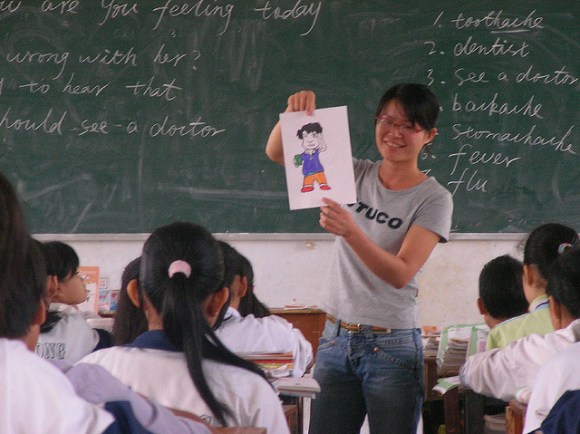 are you feeling today
wrong with her?
to hear that
should see a doctor
1. toothache
2. dentist
3. see a doctor
backache
stomachache
6 fever
flu
TUCO